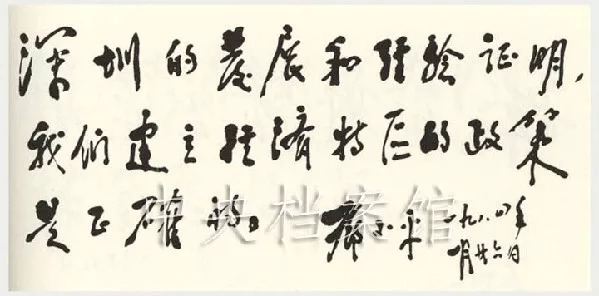 深圳的發展和經驗证明,
我们建立經濟特区的政策
是正確的。 鄧小平 一九八四年
一月廿六日
中央档案馆